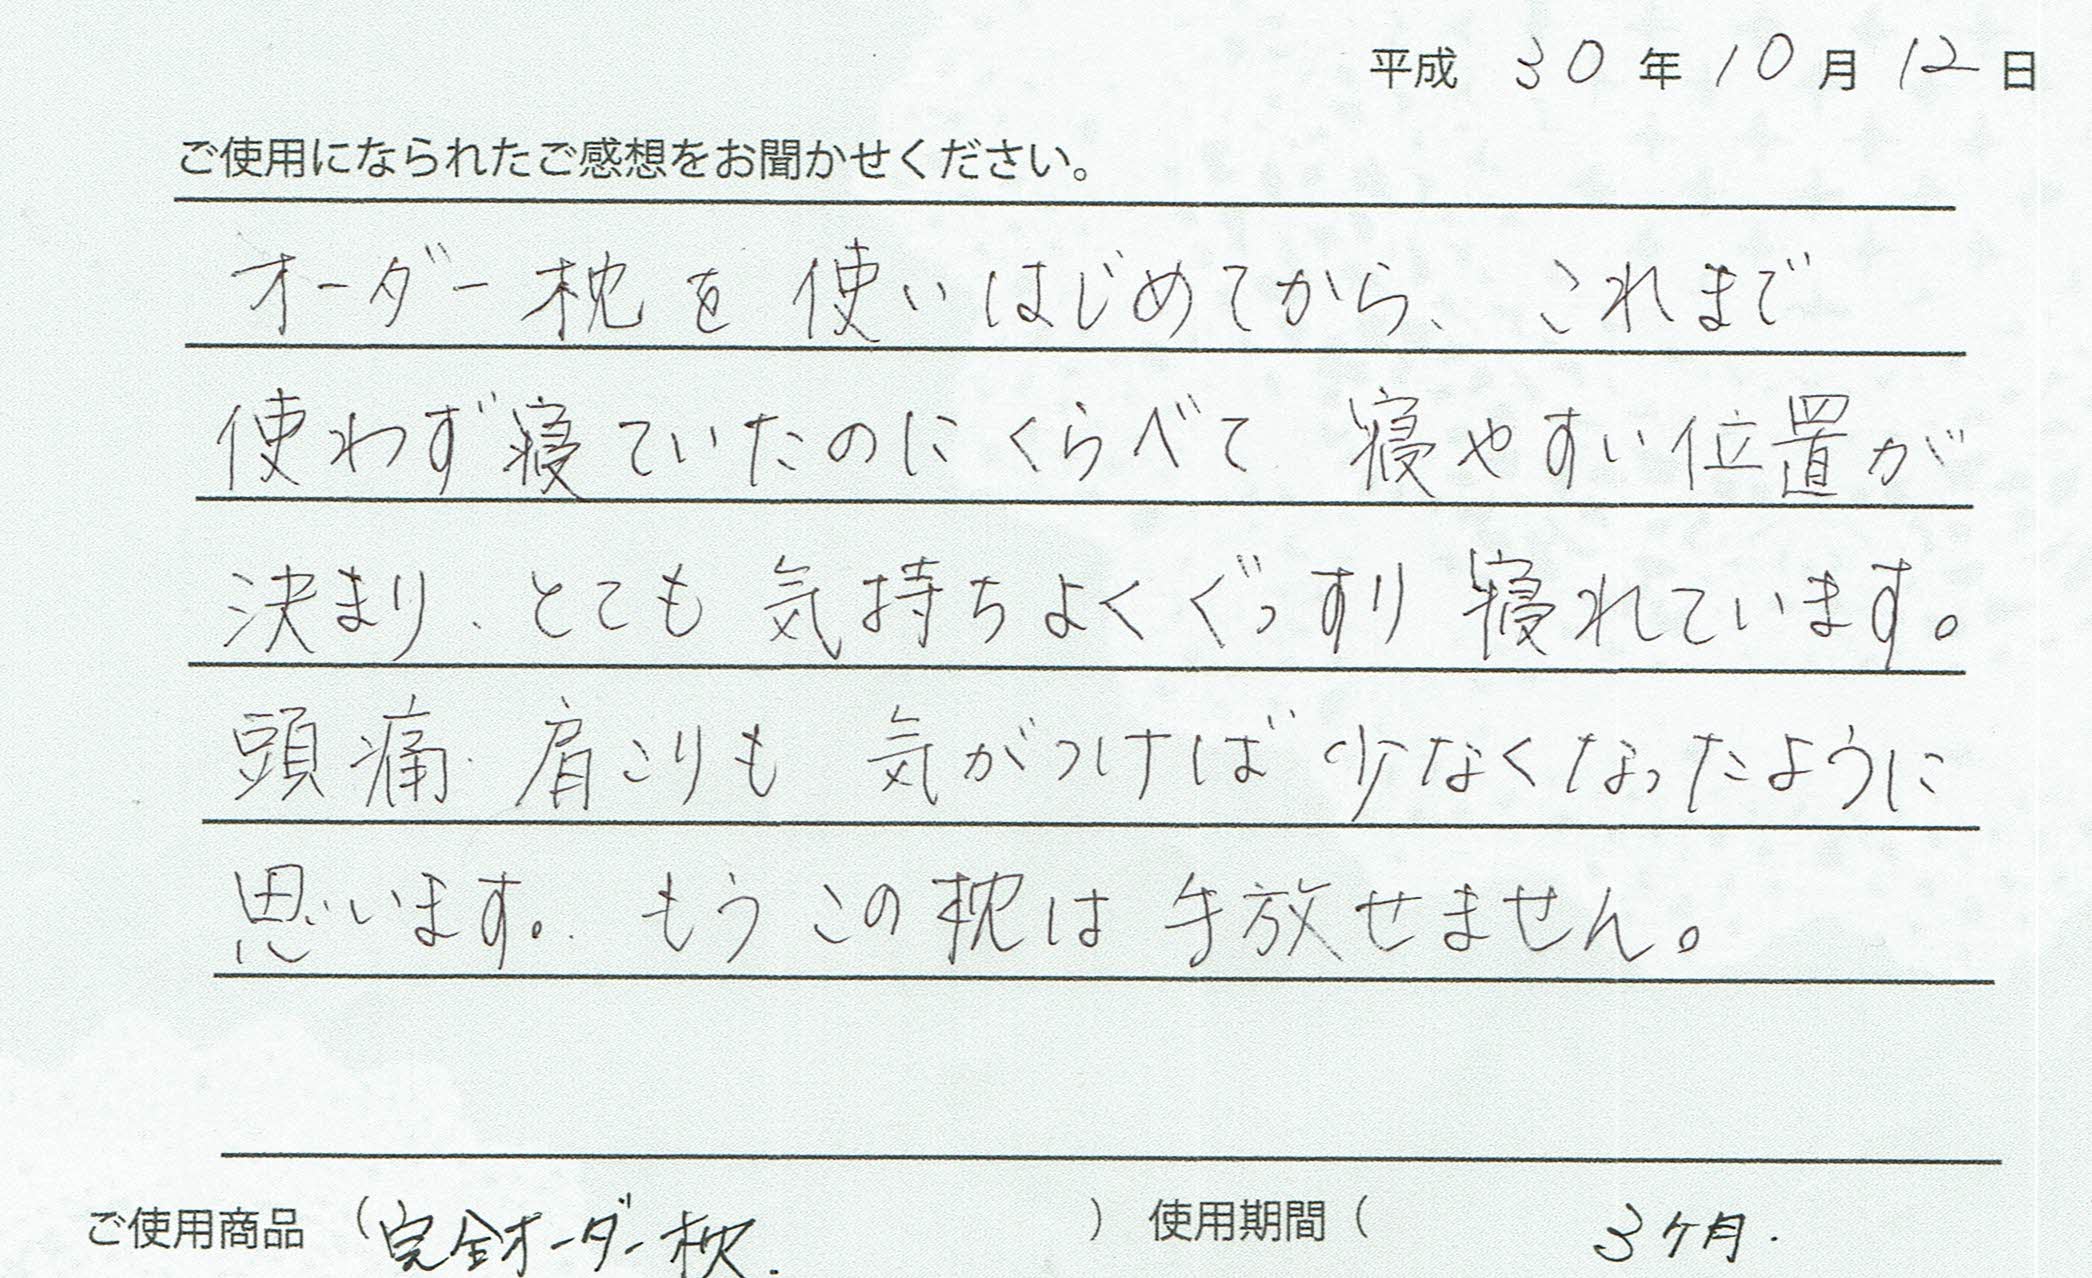 平成 30 年 10 月 12 日
ご使用になられたご感想をお聞かせください。
オーダー枕を使いはじめてから、これまで
使わず寝ていたのにくらべて 寝やすい位置が
決まり、とても気持ちよくぐっすり寝れています。
頭痛、肩こりも 気がつけば 少なくなったように
思います。もうこの枕は手放せません。
ご使用商品 (完全オーダー枕. ) 使用期間 ( 3ヶ月.